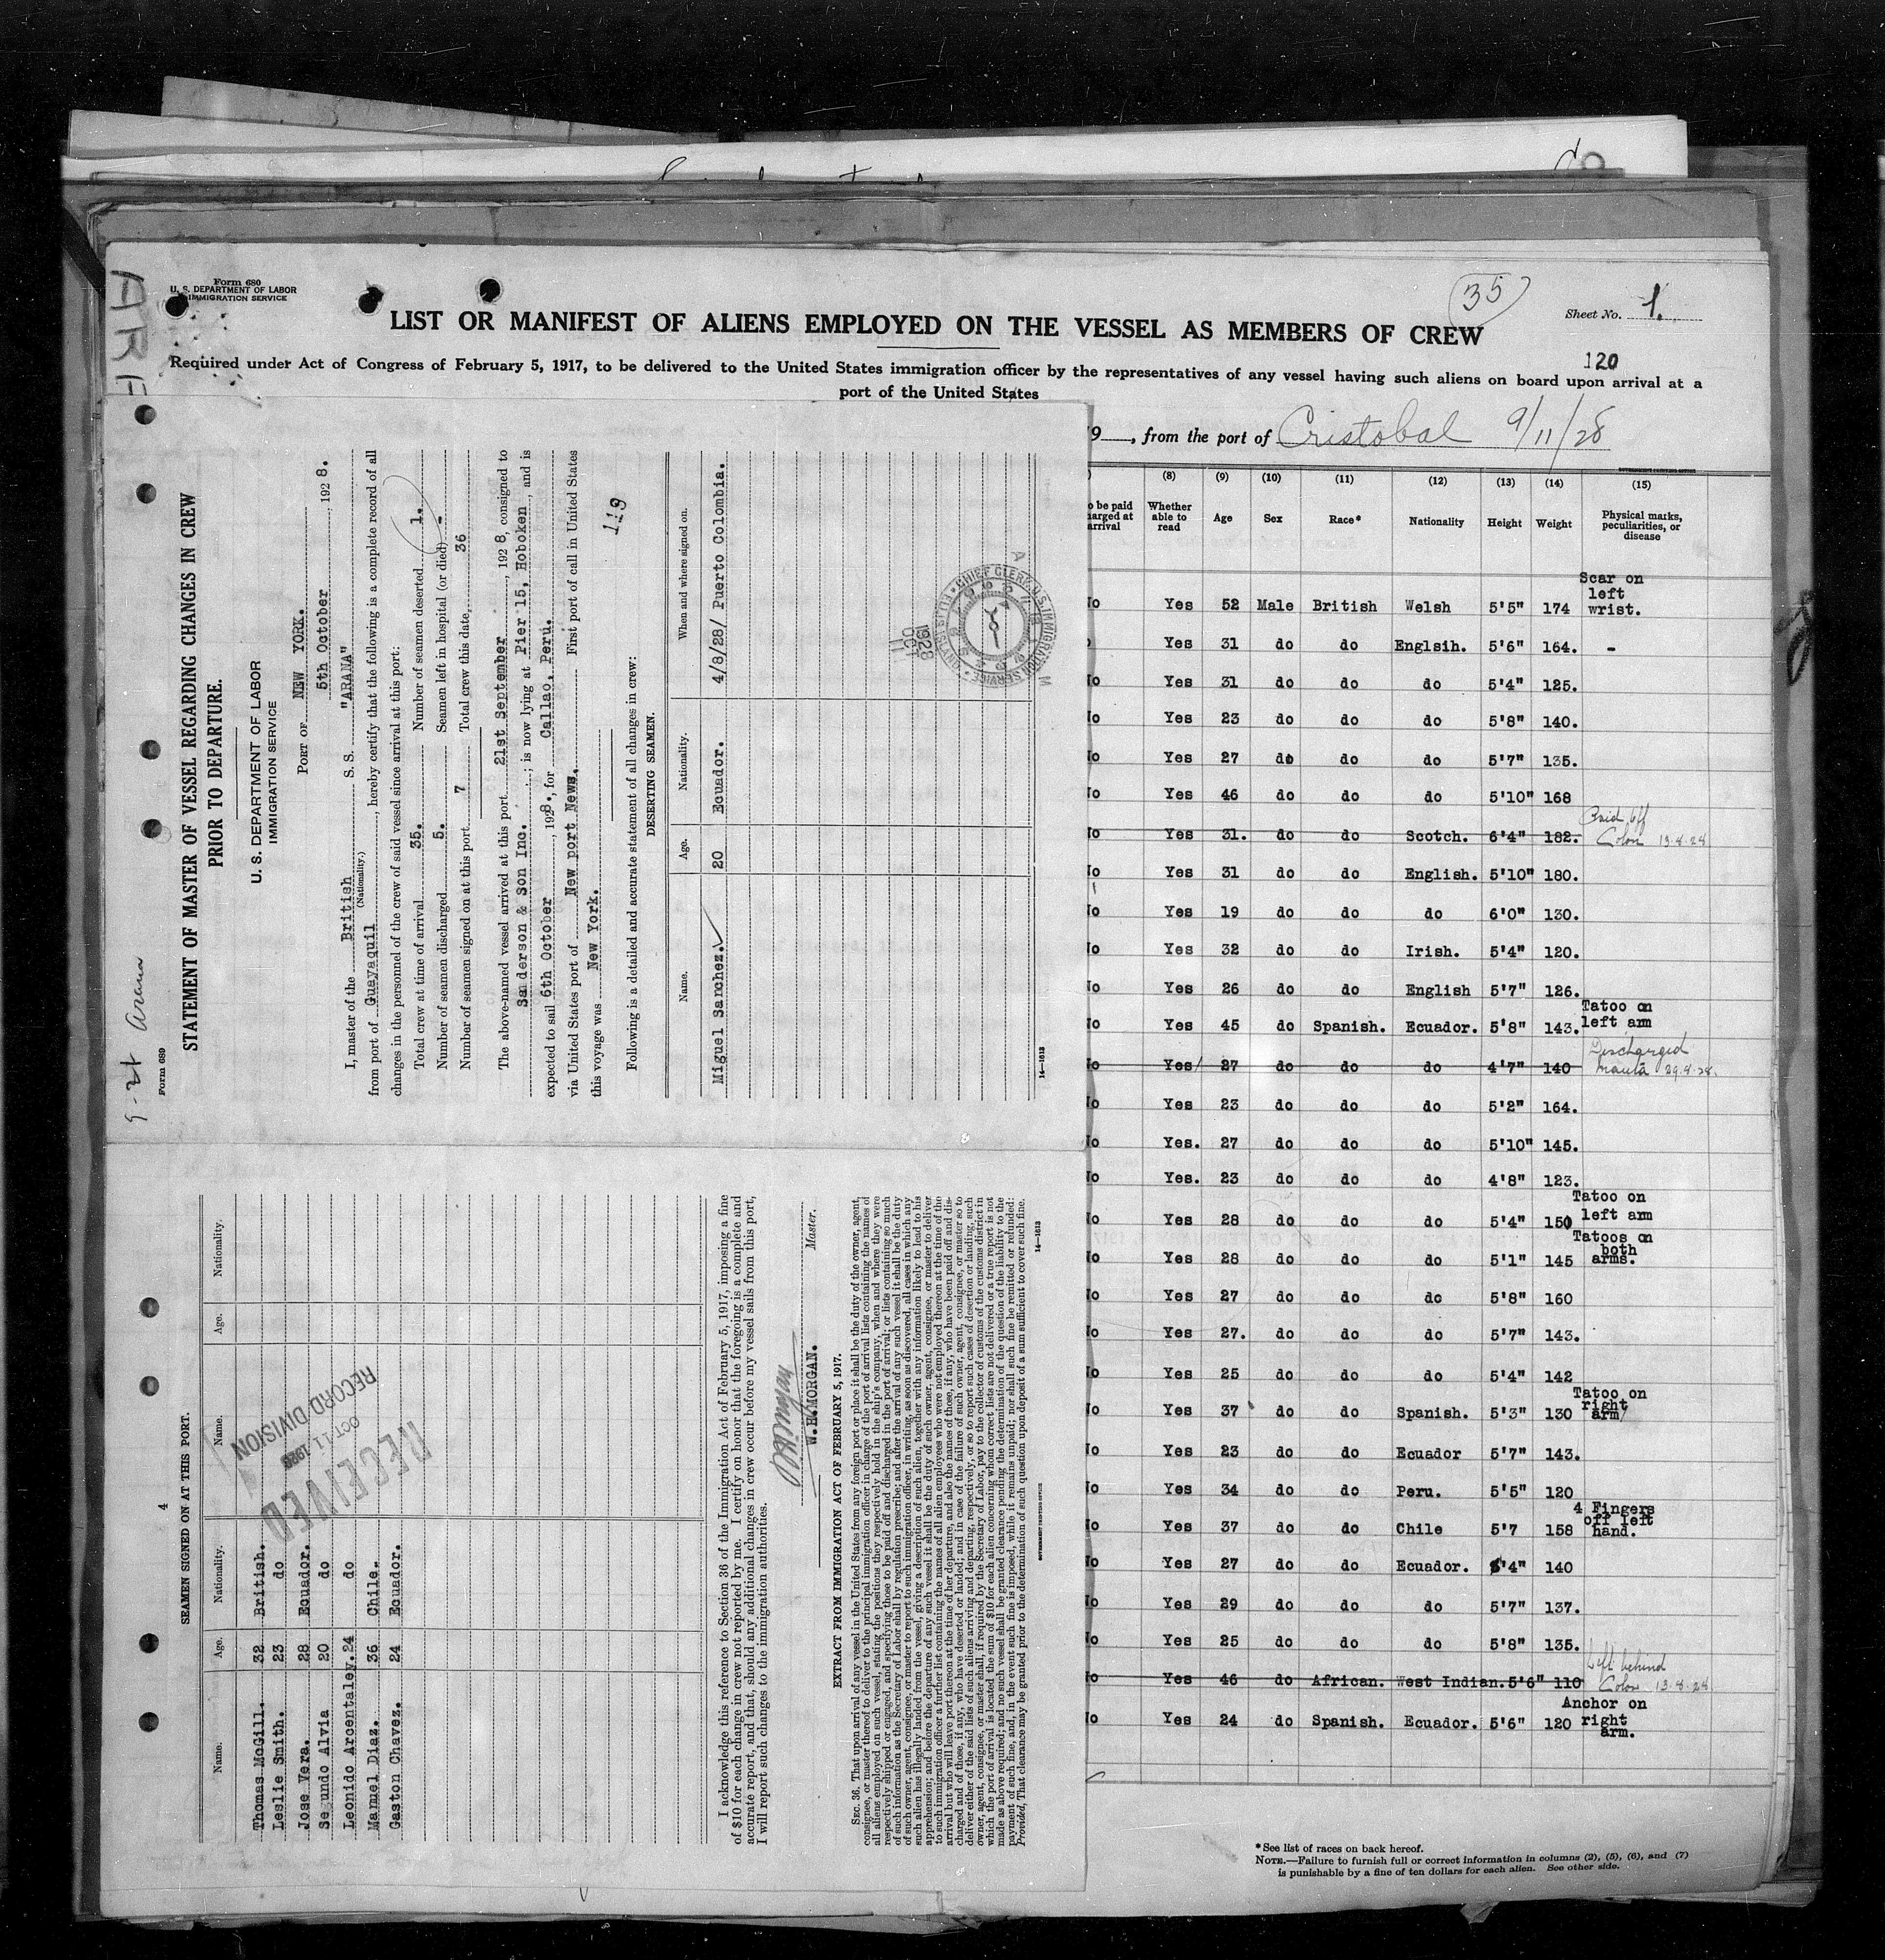 ARANA
Form 680
U. S. DEPARTMENT OF LABOR
IMMIGRATION SERVICE
35
Sheet No. 1.
LIST OR MANIFEST OF ALIENS EMPLOYED ON THE VESSEL AS MEMBERS OF CREW
120
Required under Act of Congress of February 5, 1917, to be delivered to the United States immigration officer by the representatives of any vessel having such aliens on board upon arrival at a
port of the United States
9, from the port of Cristobal 9/11/28
(8) (9) (10) (11) (12) (13) (14) (15)
o be paid
arged at
arrival
Whether able to read
Age
Sex
Race*
Nationality
Height
Weight
Physical marks, peculiarities, or disease
No Yes 52 Male British Welsh 5'5" 174 Scar on left wrist.
Yes 31 do do Englsih. 5'6" 164. -
No Yes 31 do do do 5'4" 125.
No Yes 23 do do do 5'8" 140.
No Yes 27 do do do 5'7" 135.
No Yes 46 do do do 5'10" 168
No Yes 31. do do Scotch. 6'4" 182. Paid off Colon 13.8.28
No Yes 31 do do English. 5'10" 180.
No Yes 19 do do do 6'0" 130.
No Yes 32 do do Irish. 5'4" 120.
No Yes 26 do do English 5'7" 126.
No Yes 45 do Spanish. Ecuador. 5'8" 143. Tatoo on left arm
No Yes 27 do do do 4'7" 140 Discharged Manta 29.8.28.
No Yes 23 do do do 5'2" 164.
No Yes. 27 do do do 5'10" 145.
No Yes. 23 do do do 4'8" 123.
No Yes 28 do do do 5'4" 150 Tatoo on left arm
No Yes 28 do do do 5'1" 145 Tatoos on both arms.
No Yes 27 do do do 5'8" 160
No Yes 27. do do do 5'7" 143.
No Yes 25 do do do 5'4" 142
No Yes 37 do do Spanish. 5'3" 130 Tatoo on right arm
No Yes 23 do do Ecuador 5'7" 143.
No Yes 34 do do Peru. 5'5" 120
No Yes 37 do do Chile 5'7 158 4 Fingers off left hand.
No Yes 27 do do Ecuador. 5'4" 140
No Yes 29 do do do 5'7" 137.
No Yes 25 do do do 5'8" 135.
No Yes 46 do African. West Indian. 5'6" 110 Left behind Colon 13.8.28
No Yes 24 do Spanish. Ecuador. 5'6" 120 Anchor on right arm.
*See list of races on back hereof.
NOTE.—Failure to furnish full or correct information in columns (2), (5), (6), and (7)
is punishable by a fine of ten dollars for each alien. See other side.
9-21 Arana
Form 689
STATEMENT OF MASTER OF VESSEL REGARDING CHANGES IN CREW
PRIOR TO DEPARTURE.
U. S. DEPARTMENT OF LABOR
IMMIGRATION SERVICE
PORT OF NEW YORK.
5th October, 1928.
I, master of the British S. S. "ARANA"
(Nationality.)
from port of Guayaquil, hereby certify that the following is a complete record of all
changes in the personnel of the crew of said vessel since arrival at this port:
Total crew at time of arrival 35. Number of seamen deserted 1.
Number of seamen discharged 5. Seamen left in hospital (or died) -
Number of seamen signed on at this port 7 Total crew this date, 36
The above-named vessel arrived at this port 21st September, 1928, consigned to
Sanderson & Son Inc.; is now lying at Pier 15, Hoboken, and is
expected to sail 6th October, 1928., for Callao, Peru.
via United States port of New port News. First port of call in United States
this voyage was New York.
119
Following is a detailed and accurate statement of all changes in crew:
DESERTING SEAMEN.
Name. Age. Nationality. When and where signed on.
Miguel Sarchez. 20 Ecuador. 4/8/28/ Puerto Colombia.
CHIEF CLERK U.S. IMMIGRATION SERVICE
ELLIS ISLAND
1928 OCT 11
14—1613
4
SEAMEN SIGNED ON AT THIS PORT.
Name. Age. Nationality. Name. Age. Nationality.
Thomas McGill. 32 British.
Leslie Smith. 23 do
Jose Vera. 28 Ecuador.
Segundo Alvia 20 do
Leonido Arcentaley. 24 do
Manuel Diaz. 36 Chile.
Gaston Chavez. 24 Ecuador.
RECEIVED
OCT 11 1928
RECORD DIVISION
I acknowledge this reference to Section 36 of the Immigration Act of February 5, 1917, imposing a fine
of $10 for each change in crew not reported by me. I certify on honor that the foregoing is a complete and
accurate report, and that, should any additional changes in crew occur before my vessel sails from this port,
I will report such changes to the immigration authorities.
W. E. Morgan
W.E.MORGAN. Master.
EXTRACT FROM IMMIGRATION ACT OF FEBRUARY 5, 1917.
SEC. 36. That upon arrival of any vessel in the United States from any foreign port or place it shall be the duty of the owner, agent,
consignee, or master thereof to deliver to the principal immigration officer in charge of the port of arrival lists containing the names of
all aliens employed on such vessel, stating the positions they respectively hold in the ship's company, when and where they were
respectively shipped or engaged, and specifying those to be paid off and discharged in the port of arrival; or lists containing so much
of such information as the Secretary of Labor shall by regulation prescribe; and after the arrival of any such vessel it shall be the duty
of such owner, agent, consignee, or master to report to such immigration officer, in writing, as soon as discovered, all cases in which any
such alien has illegally landed from the vessel, giving a description of such alien, together with any information likely to lead to his
apprehension; and before the departure of any such vessel it shall be the duty of such owner, agent, consignee, or master to deliver
to such immigration officer a further list containing the names of all alien employees who were not employed thereon at the time of the
arrival but who will leave port thereon at the time of her departure, and also the names of those, if any, who have been paid off and dis-
charged and of those, if any, who have deserted or landed; and in case of the failure of such owner, agent, consignee, or master so to
deliver either of the said lists of such aliens arriving and departing, respectively, or so to report such cases of desertion or landing, such
owner, agent, consignee, or master shall, if required by the Secretary of Labor, pay to the collector of customs of the customs district in
which the port of arrival is located the sum of $10 for each alien concerning whom correct lists are not delivered or a true report is not
made as above required; and no such vessel shall be granted clearance pending the determination of the question of the liability to the
payment of such fine, and, in the event such fine is imposed, while it remains unpaid; nor shall such fine be remitted or refunded:
Provided, That clearance may be granted prior to the determination of such question upon deposit of a sum sufficient to cover such fine.
14—1613
GOVERNMENT PRINTING OFFICE